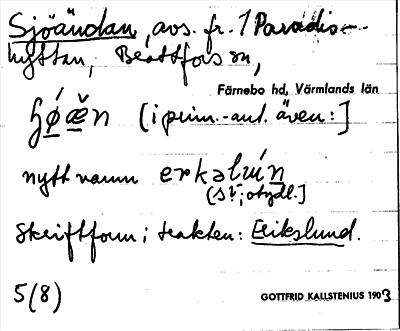 Sjöändan, avs. fr. 1 Paradis-
hyttan, Brattfors sn,
Färnebo hd, Värmlands län
(i prim.-ant. även:]
nytt namn erkəlvin
(st; otydl.]
Skriftform i trakten: Erikslund.
5(8)
GOTTFRID KALLSTENIUS 1903